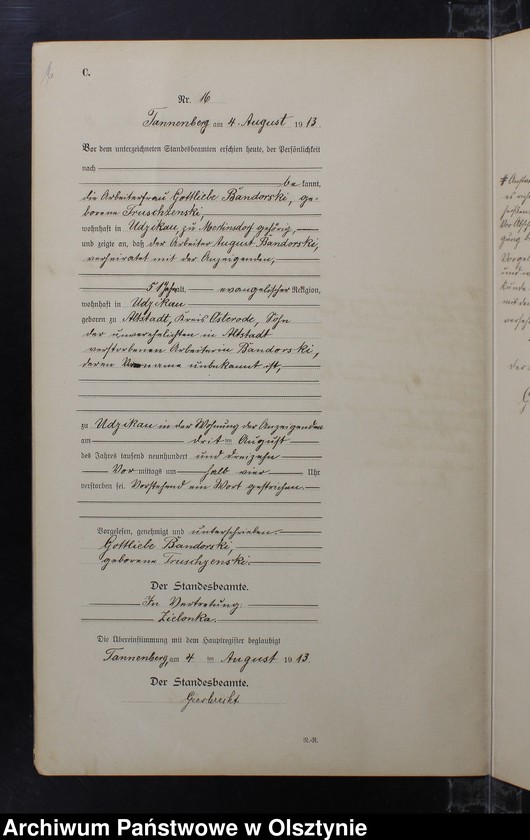 C.
Nr. 16
Tannenberg am 4. August 1913.
Vor dem unterzeichneten Standesbeamten erschien heute, der Persönlichkeit
nach
be kannt,
die Arbeiterfrau Gottliebe Bandorski, ge-
borene Truschzenski,
wohnhaft in Udzikau, zu Mertinsdorf gehörig,
und zeigte an, daß der Arbeiter August Bandorski,
verheiratet mit der Anzeigenden,
51 Jahre alt, evangelischer Religion,
wohnhaft in Udzikau
geboren zu Altstadt, Kreis Osterode, Sohn
der unverehelichten in Altstadt
verstorbenen Arbeiterin Bandorski,
deren Vorname unbekannt ist,
zu Udzikau in der Wohnung der Anzeigenden
am drit ten August
des Jahres tausend neunhundert und dreizehn
Vor mittags um halb vier Uhr
verstorben sei. Vorstehend ein Wort gestrichen.
Vorgelesen, genehmigt und unterschrieben.
Gottliebe Bandorski,
geborene Truschzenski.
Der Standesbeamte.
In Vertretung:
Zielonka.
Die Übereinstimmung mit dem Hauptregister beglaubigt
Tannenberg, am 4 ten August 1913.
Der Standesbeamte.
R.-R.
Archiwum Państwowe w Olsztynie